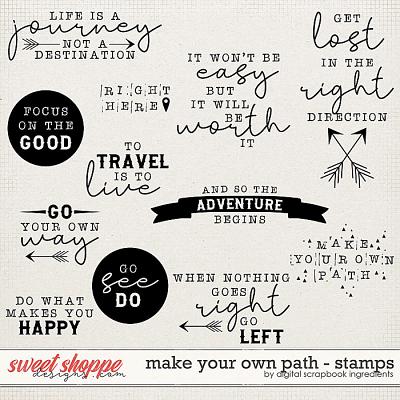 LIFE IS A
journey
NOT A
DESTINATION
GET
lost
IN THE
right
DIRECTION
IT WON'T BE
easy
BUT
IT WILL
BE
worth
IT
RIGHT
HERE
FOCUS
ON THE
GOOD
TO
TRAVEL
IS TO
live
AND SO THE
ADVENTURE
BEGINS
GO
YOUR OWN
way
GO
see
DO
MAKE
YOUR OWN
PATH
WHEN NOTHING
GOES
right
GO
LEFT
DO WHAT
MAKES YOU
HAPPY
sweet shoppe
designs.com
make your own path - stamps
by digital scrapbook ingredients